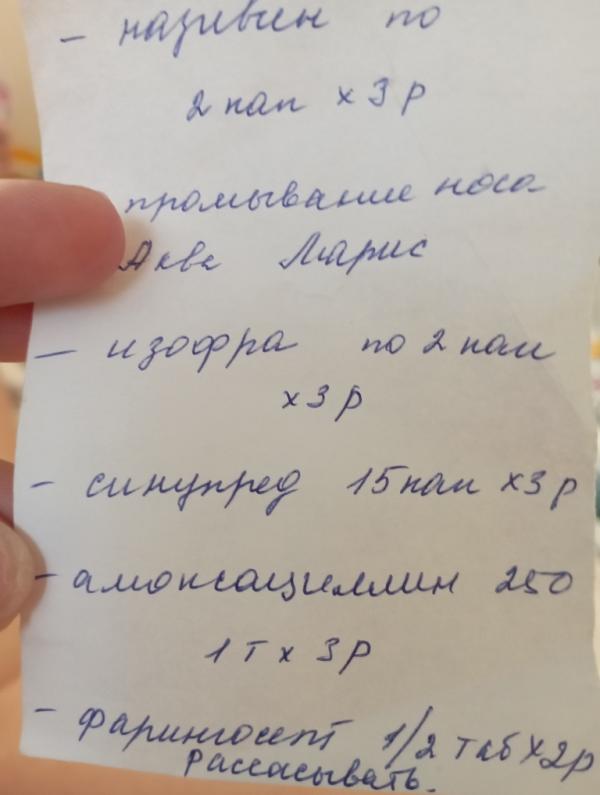 - називин по
2 кап х 3 р
промывание носа
Аква Марис
- изофра по 2 кап
х 3 р
- синупред 15 кап х3 р
- амоксациллин 250
1 т х 3 р
- фарингосепт 1/2 таб х 2р
рассасывать.